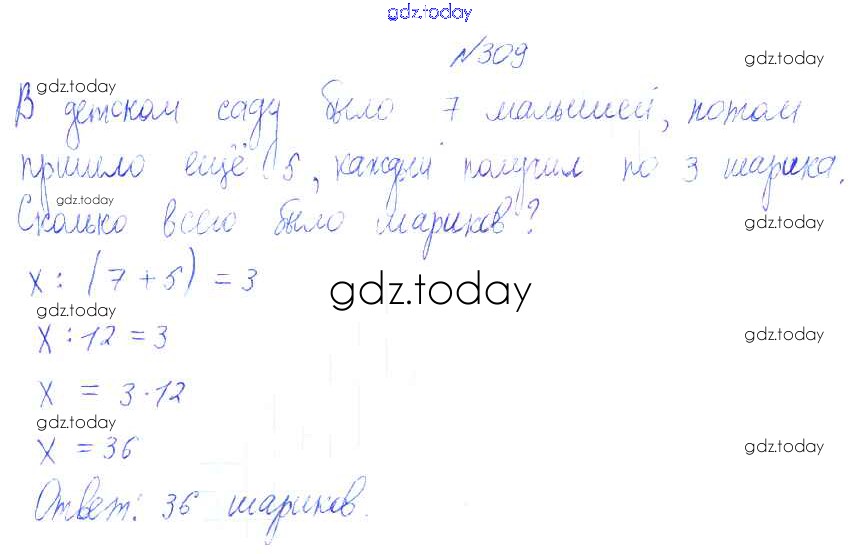 gdz.today
№309
gdz.today
gdz.today
В детском саду было 7 малышей, потом
пришло ещё 5, каждый получил по 3 шарика.
gdz.today
Сколько всего было шариков?
gdz.today
x : (7 + 5) = 3
gdz.today
gdz.today
x : 12 = 3
gdz.today
x = 3 · 12
gdz.today
x = 36
gdz.today
Ответ: 36 шариков.